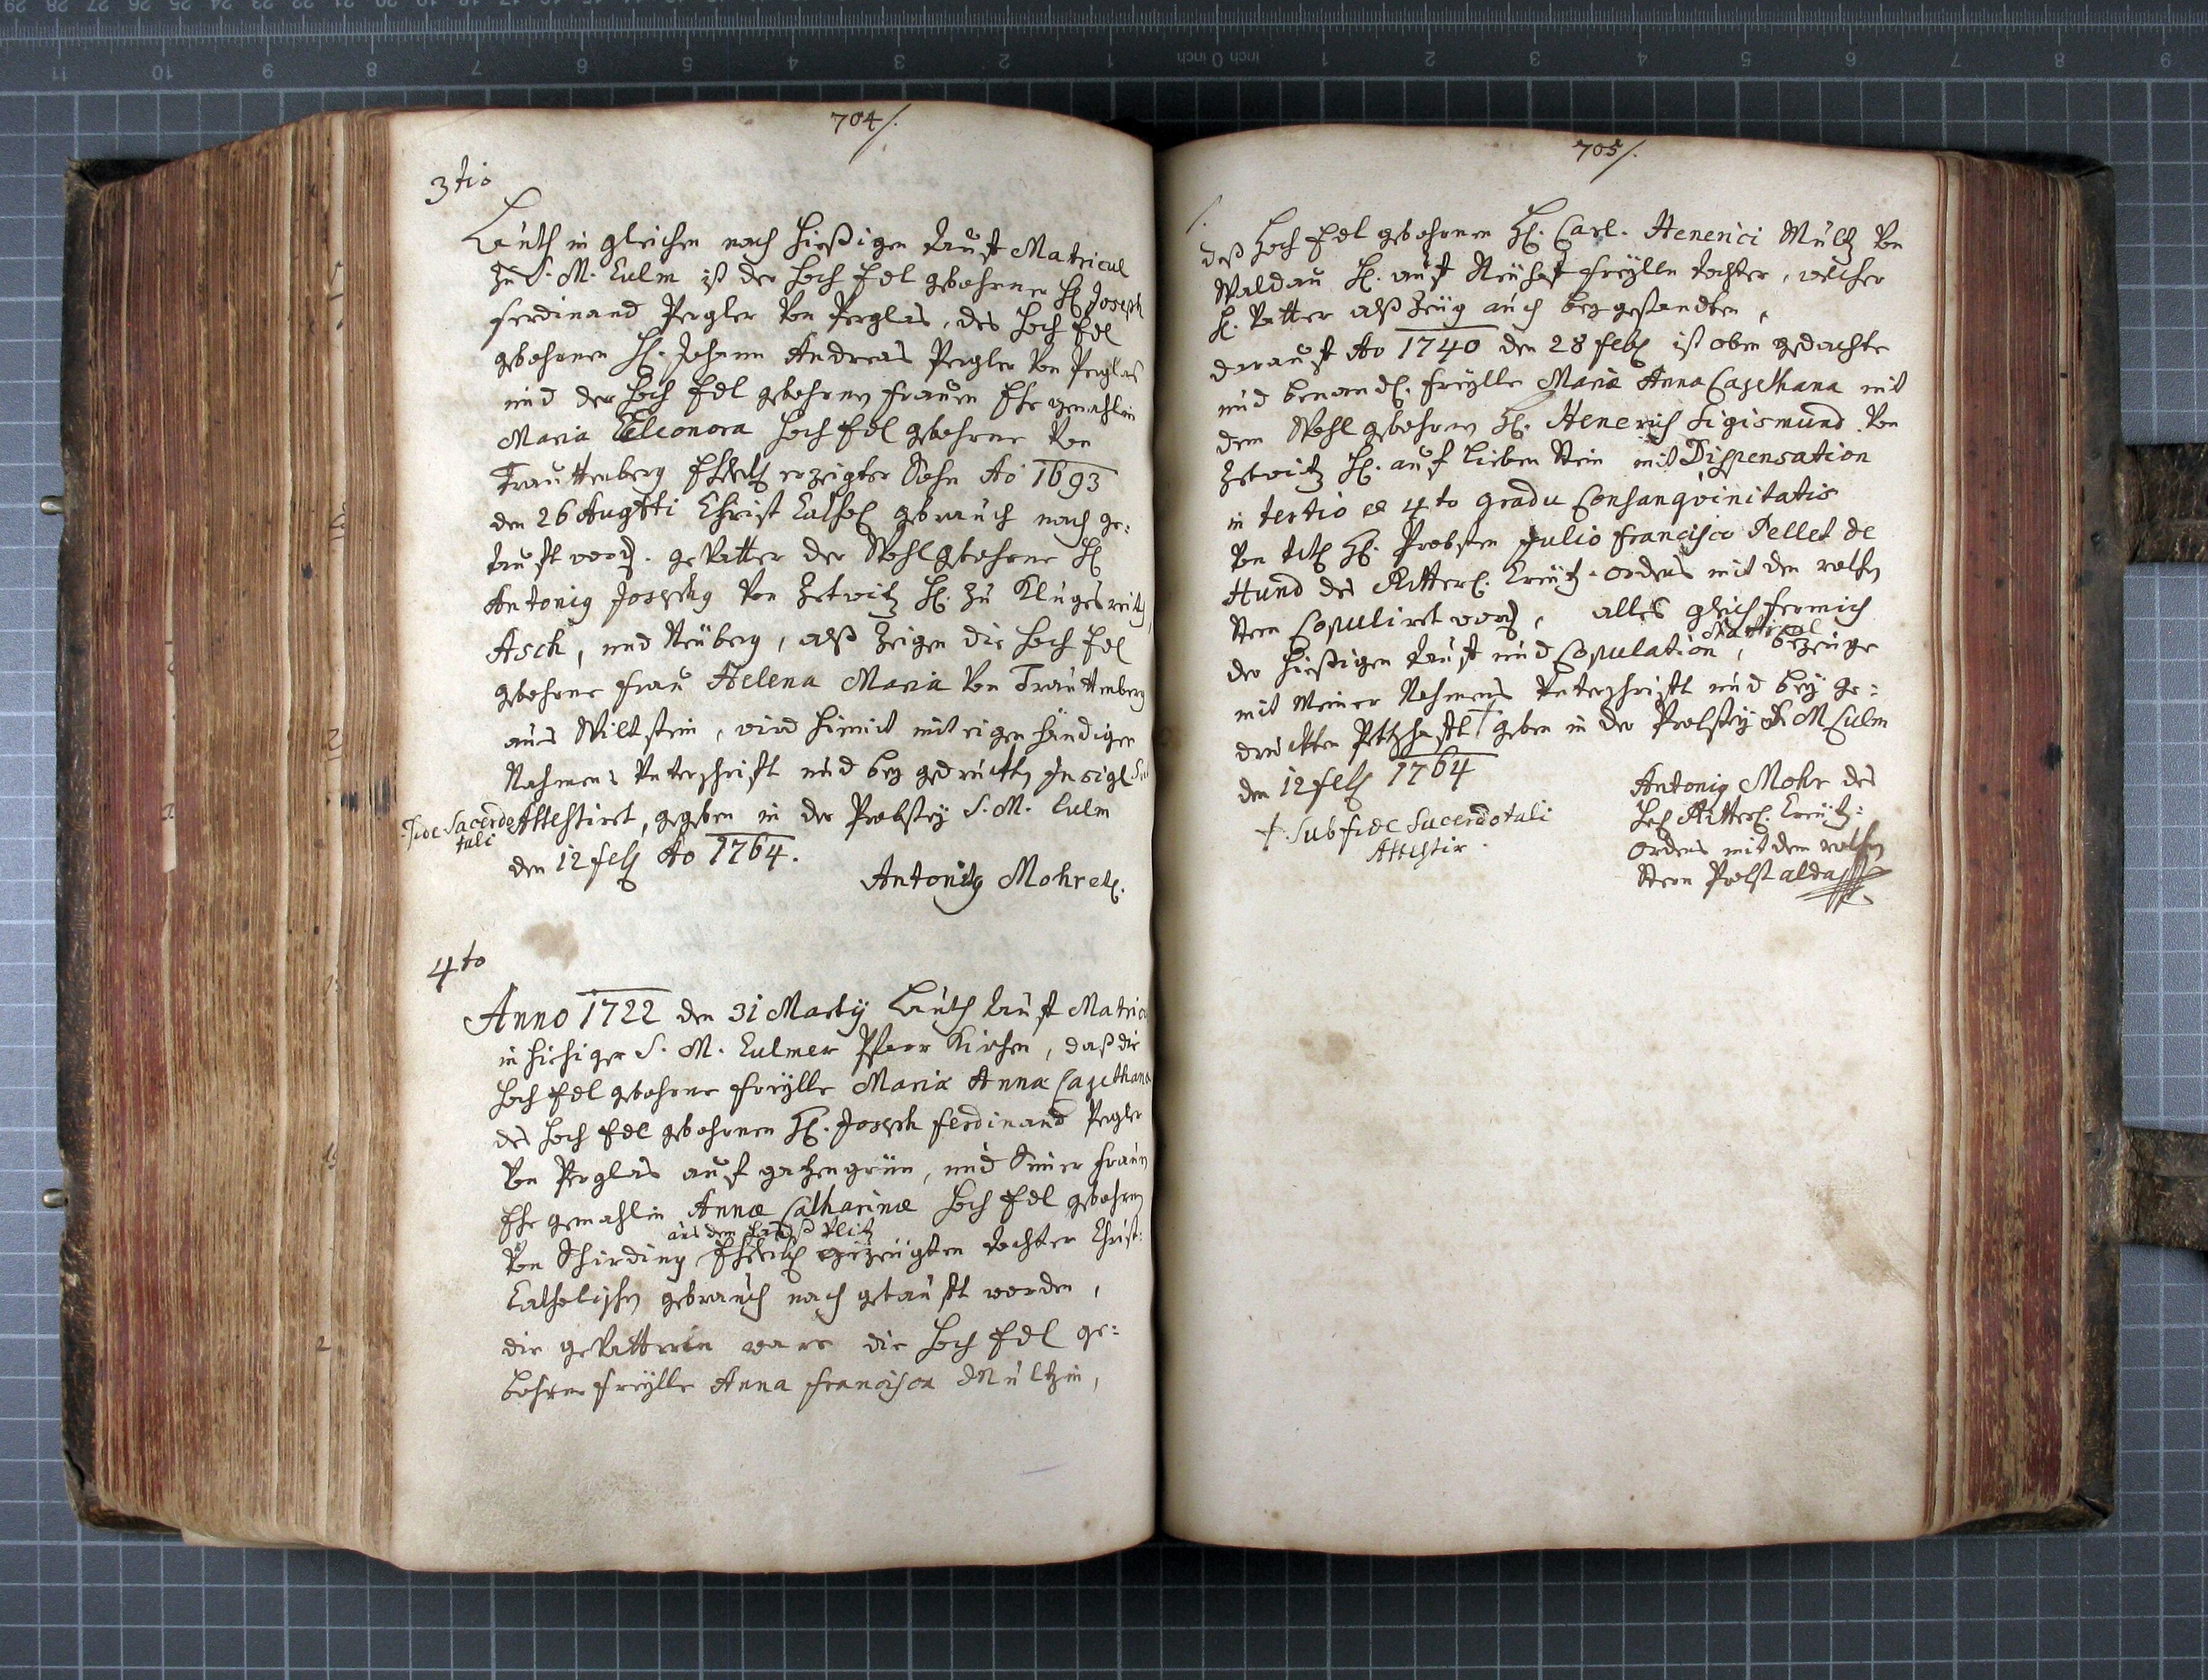 704/.
3tio
Lauth in gleichen nach hießigen Tauff Matricul
zu S. M. Culm ist der Hoch Edl gebohrner H. Joseph
Ferdinand Pergler von Perglas, des Hoch Edl
gebohrnen H. Johann Andreas Pergler von Perglas
und der Hoch Edl gebohrnen Frauen Ehe gemahlin
Maria Eleonora Hoch Edl gebohrne von
Trauttenberg Ehelich erzeigter Sohn Ao 1693
den 26 Augsti Christ Cathol gebrauch nach ge:
taufft word. gevatter der Wohl gebohrne H
Antonig Josephg von Zetwitz H. zu
Asch, und Neuberg, alß Zeigen die Hoch Edl
gebohrne Frau Helena Maria von Trauttenberg
aus Wiltstein, wird hiemit mit eigen händiger
Nahmens Unterschrifft und bey gedruckten Insigl Sub
Fide Sacerdo Attestiret, gegeben in der Probstey S. M. Culm
tali
den 12 feb Ao 1764.
Antonig Mohr
4to
Anno 1722 den 31 Martij Lauth Tauff Matric
in hiesiger S. M. Culmer Pfarr Kirchen, daß die
Hoch Edl gebohrne freylle Maria Anna Cajethana
des Hoch Edl gebohrnen H. Joseph Ferdinand Pergler
von Perglas auff gassengrün, und Seiner Frauen
Ehe gemahlin Annæ Catharinæ Hoch Edl gebohrnen
aus dem Hauß
von Schirding Ehelich erzeugten Tochter Christ:
Catholischen gebrauch nach getaufft worden,
die gevatterin ware die Hoch Edl ge:
bohrne freylle Anna Francisca Mültzin,
705/.
/.
deß Hoch Edl gebohrnen H. Carl. Henerici Mültz von
Waldau H. auff Neuhoff freylln Tochter, welcher
H. Vatter alß Zeug auch bey gestandten,
darauff Ao 1740 den 28 feb ist oben gedachte
und benand. freylle Maria Anna Cajethana mit
dem Wohl gebohrnen H. Henerich Sigismund von
Zetwitz H. auf Lieben Stein mit Dispensation
in tertio et 4to gradu Consangvinitatis
von H. Probsten Julio Francisco Pellet de
Hund des Ritterl. Creutz-ordens mit den rothen
Stern Copuliret word, alles gleich formich
Matricul
der hießigen Tauff und Copulation, bezeuge
mit Meiner Nahmens Unterschrifft und bey ge:
druckten Pettschafft † geben in der Probstey S. M Culm
den 12 feb 1764
† Sub fide Sacerdotali
Attestir.
Antonig Mohr des
Ritterl. Creutz:
Ordens mit dem rothen
Stern Probst alda